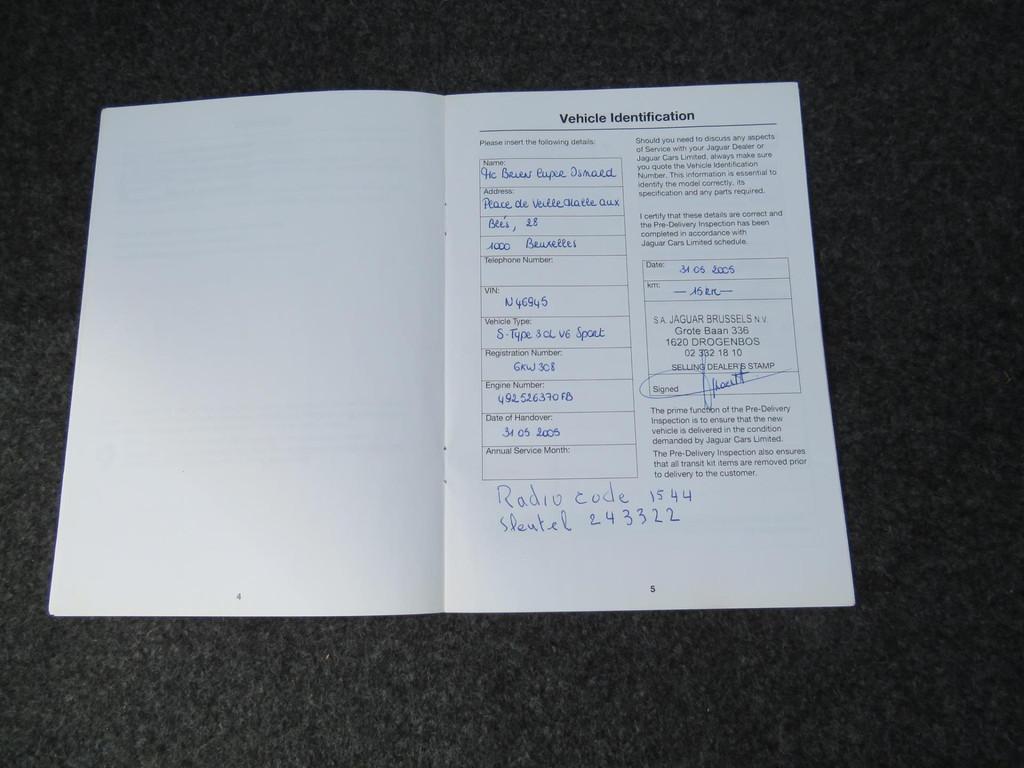 Vehicle Identification
Please insert the following details:
Name:
Address:
Place de Veille Halle aux
Blés, 28
1000 Bruxelles
Telephone Number:
VIN:
N46945
Vehicle Type:
S-Type 3.0L V6 Sport
Registration Number:
GKW 308
Engine Number:
492526370FB
Date of Handover:
31 05 2005
Annual Service Month:
Should you need to discuss any aspects
of Service with your Jaguar Dealer or
Jaguar Cars Limited, always make sure
you quote the Vehicle Identification
Number. This information is essential to
identify the model correctly, its
specification and any parts required.
I certify that these details are correct and
the Pre-Delivery Inspection has been
completed in accordance with
Jaguar Cars Limited schedule.
Date:
31 05 2005
km:
S.A. JAGUAR BRUSSELS N.V.
Grote Baan 336
1620 DROGENBOS
02 332 18 10
SELLING DEALER'S STAMP
Signed
The prime function of the Pre-Delivery
Inspection is to ensure that the new
vehicle is delivered in the condition
demanded by Jaguar Cars Limited.
The Pre-Delivery Inspection also ensures
that all transit kit items are removed prior
to delivery to the customer.
Radio code 1544
Sleutel 243322
4
5